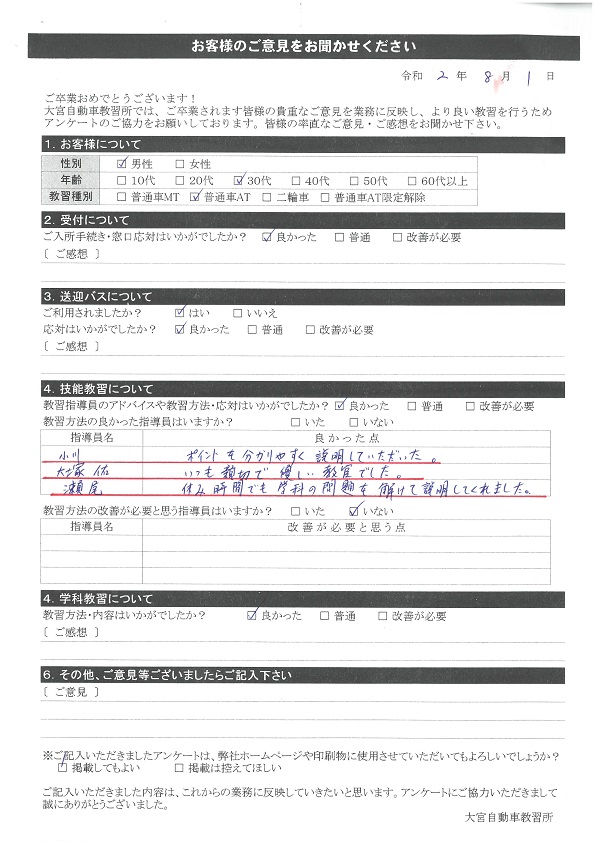 お客様のご意見をお聞かせください
令和 2 年 8 月 1 日
ご卒業おめでとうございます！
大宮自動車教習所では、ご卒業されます皆様の貴重なご意見を業務に反映し、より良い教習を行うため
アンケートのご協力をお願いしております。皆様の率直なご意見・ご感想をお聞かせ下さい。
1. お客様について
性別 ☑男性 □女性
年齢 □10代 □20代 ☑30代 □40代 □50代 □60代以上
教習種別 □普通車MT ☑普通車AT □二輪車 □普通車AT限定解除
2. 受付について
ご入所手続き・窓口応対はいかがでしたか？ ☑良かった □普通 □改善が必要
[ ご感想 ]
3. 送迎バスについて
ご利用されましたか？ ☑はい □いいえ
応対はいかがでしたか？ ☑良かった □普通 □改善が必要
[ ご感想 ]
4. 技能教習について
教習指導員のアドバイスや教習方法・応対はいかがでしたか？ ☑良かった □普通 □改善が必要
教習方法の良かった指導員はいますか？ □いた □いない
指導員名 良かった点
小川 ポイントを分かりやすく説明していただいた。
大塚佑 いつも親切で優しい教官でした。
瀬尾 休み時間でも学科の問題を解けて説明してくれました。
教習方法の改善が必要と思う指導員はいますか？ □いた ☑いない
指導員名 改善が必要と思う点
4. 学科教習について
教習方法・内容はいかがでしたか？ ☑良かった □普通 □改善が必要
[ ご感想 ]
6. その他、ご意見等ございましたらご記入下さい
[ ご意見 ]
※ご記入いただきましたアンケートは、弊社ホームページや印刷物に使用させていただいてもよろしいでしょうか？
☑掲載してもよい □掲載は控えてほしい
ご記入いただきました内容は、これからの業務に反映していきたいと思います。アンケートにご協力いただきまして
誠にありがとうございました。
大宮自動車教習所